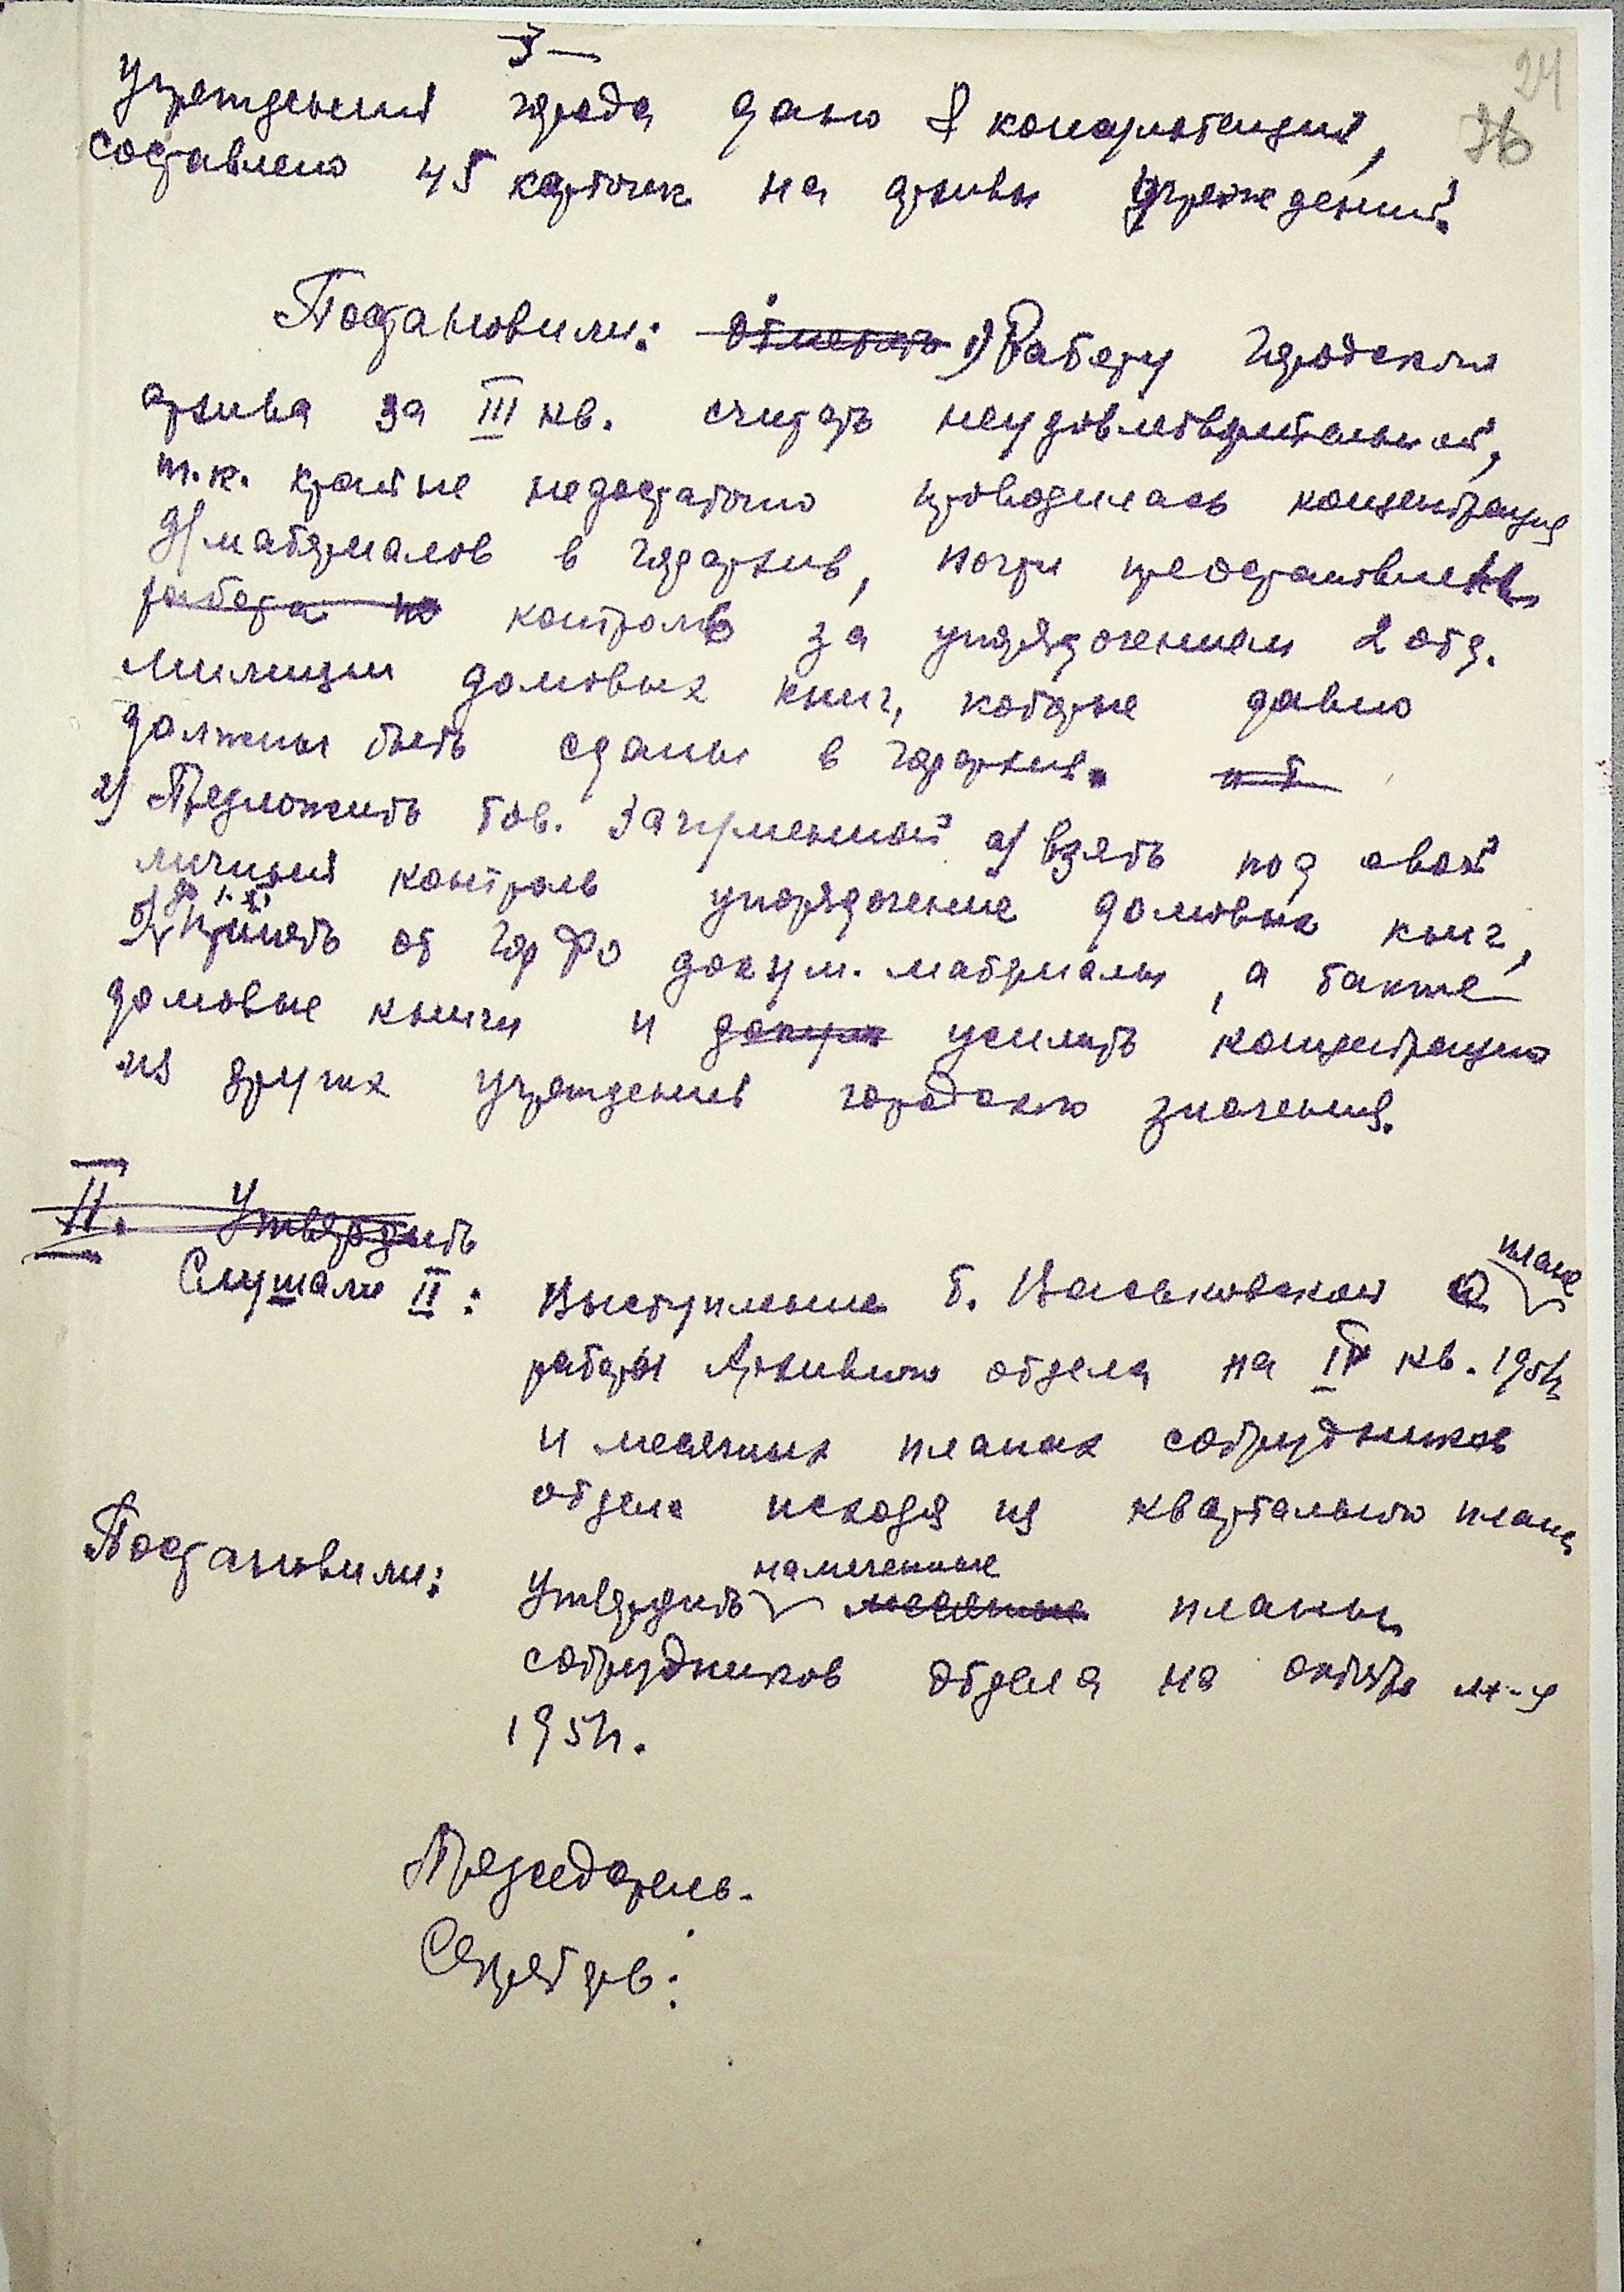 3 —
24
36
учреждений города дано 8 консультаций,
составлено 45 карточек на архивы учреждений.
Постановили: Отметить 1) Работу городского
архива за III кв. считать неудовлетворительной,
т.к. крайне недостаточно проводилась концентрация
д/материалов в горархив, почти преостановлен
работа по контроль за упорядочением 2 отд.
милиции домовых книг, которые давно
должны быть сданы в горархив. и т
2) Предложить тов. Загуменной а) взять под свой
личный контроль упорядочение домовых книг,
до 1.XI
б) принять от Гор ФО докум. материалы, а также
домовые книги и докум усилить концентрацию
из других учреждений городского значения.
II. Утвердить
Слушали II: Выступление т. Васьковской о плане
работы Архивного отдела на IV кв. 1951г
и месячных планах сотрудников
отдела исходя из квартального плана
Постановили: Утвердить намеченные месячные планы
сотрудников отдела на октябрь м-ц
1951г.
Председатель.
Секретарь: